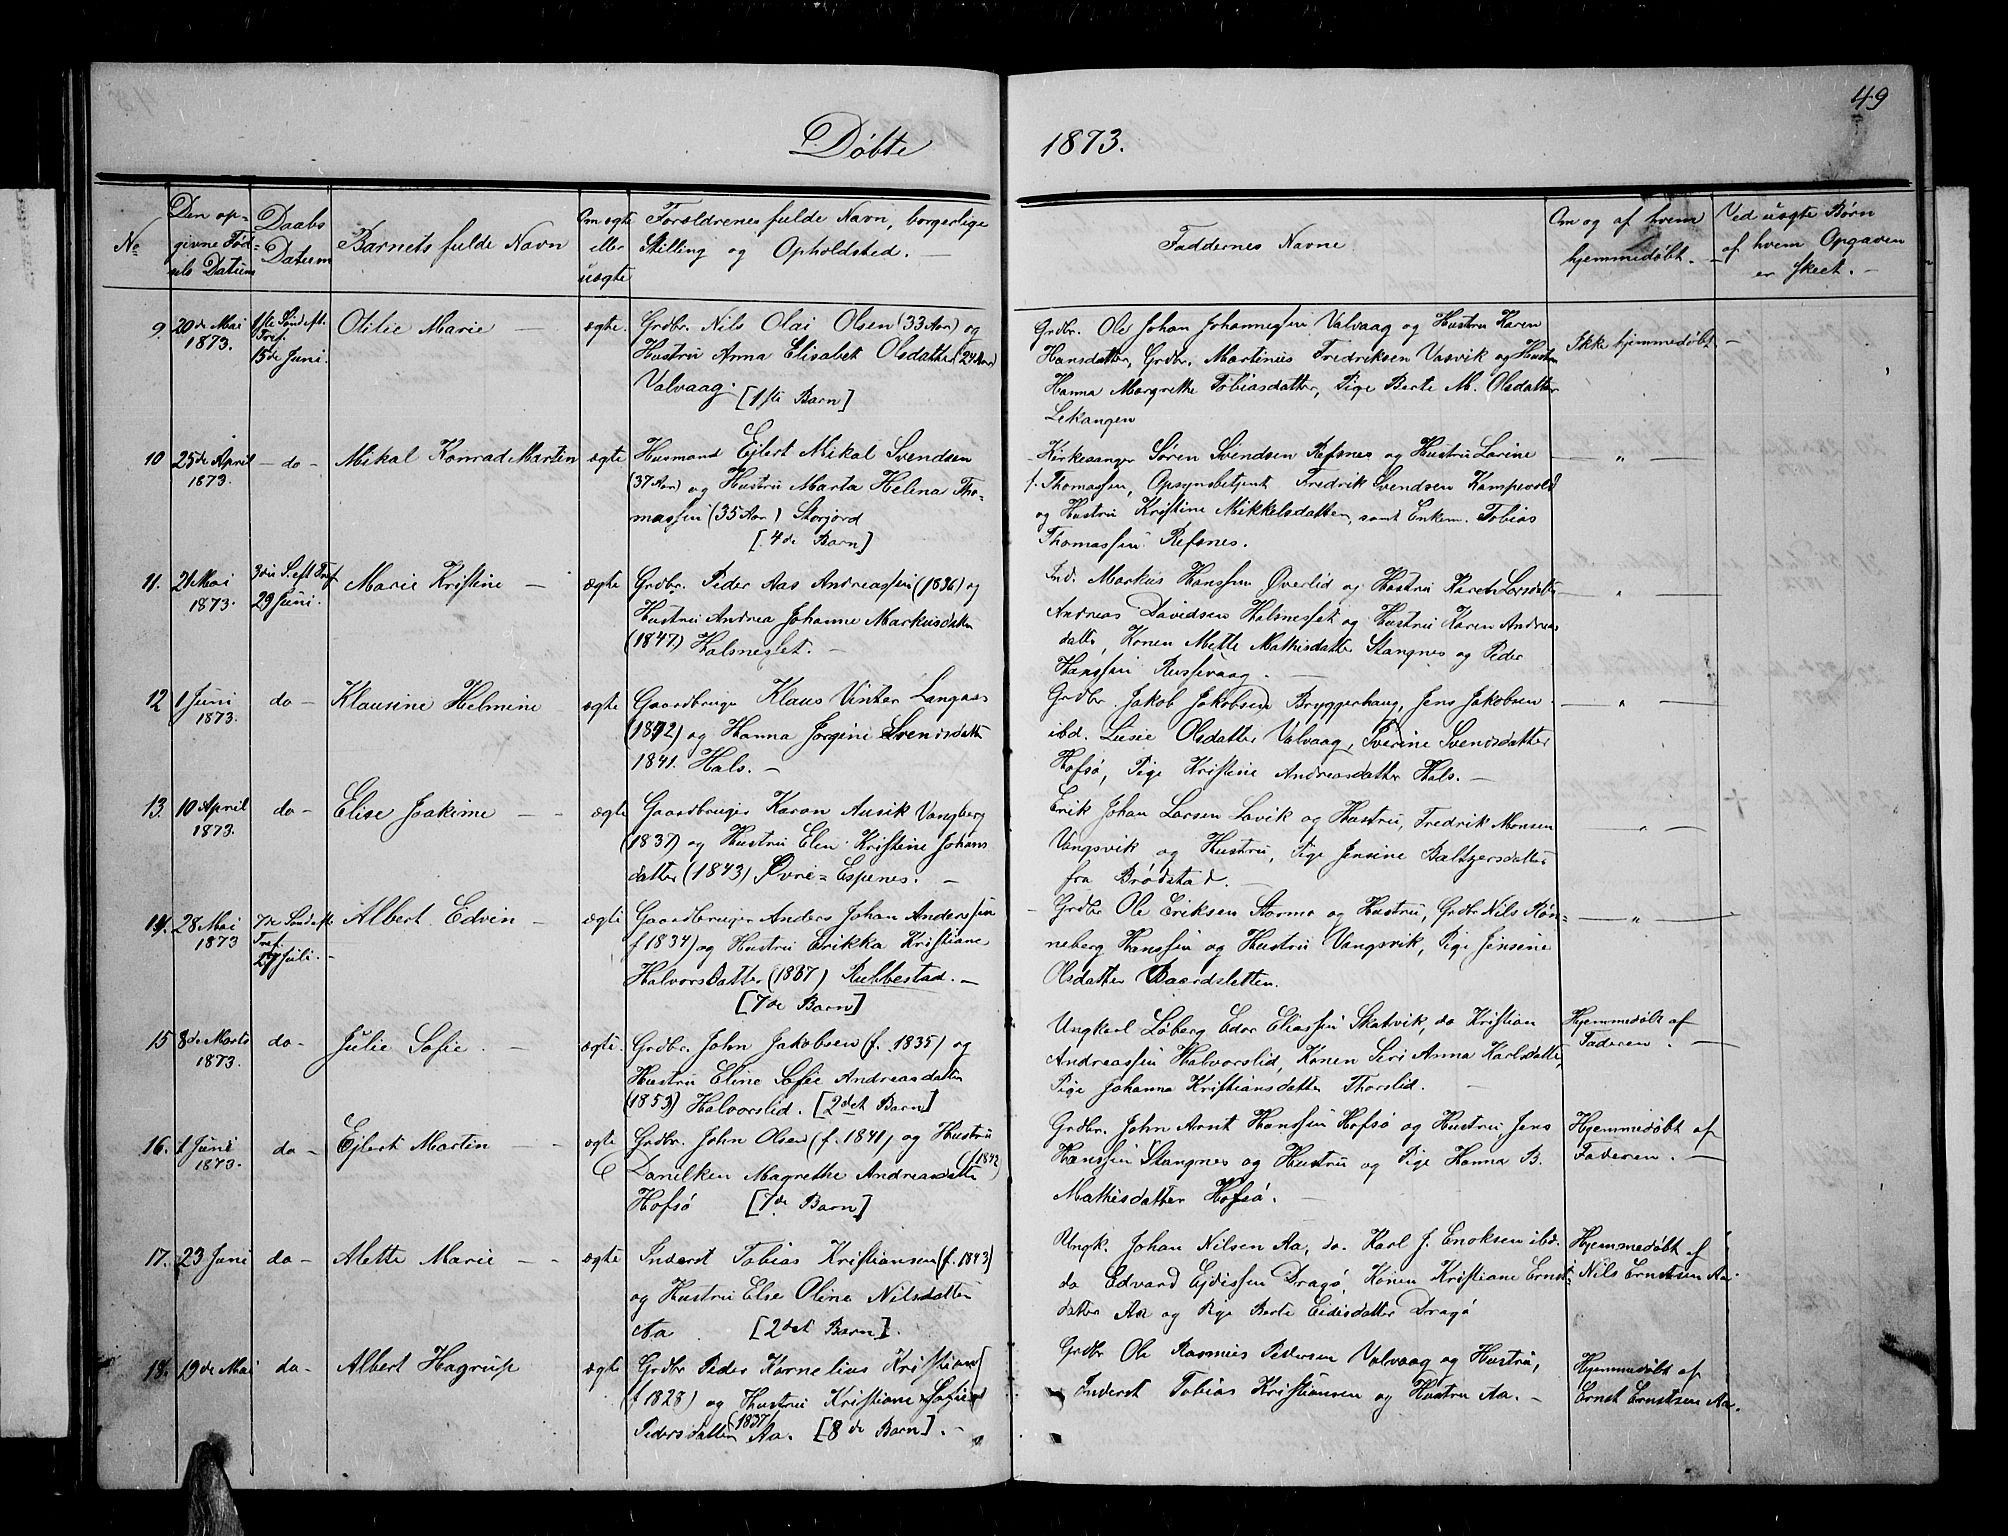 49
Døbte 1873.
No
Den op-
givne Fød-
sels Datum
Daabs
Datum
Barnets fulde Navn
Om ægte
eller
uægte
Forældrenes fulde Navn, borgerlige
Stilling og Opholdsted. —
Faddernes Navne
Om og af hvem
hjemmedøbt. —
Ved uægte Børn
af hvem Opgaven
er skeet. —
9. 20de Mai
1873.
1ste Sönd eft.
Tref.
15de Juni.
Otilie Marie —
ægte.
Grdbr. Nils Olai Olsen (33 Aar) og
Hustru Anna Elisabet Olsdatter (24 Aar)
Valvaag. [1ste Barn]
Grdbr. Ole Johan Johannessen Valvaag og Hustru Karen
Hansdatter, Grdbr. Martinus Fredriksen Vasvik og Hustru
Hanna Margrethe Tobiasdatter, Pige Berte M. Olsdatter
Lekangen
Ikke hjemmedøbt —
10 25de April
1873.
— do —
Mikal Konrad Martin
ægte
Husmand Ejlert Mikal Svendsen
(37 Aar) og Hustru Marta Helena Tho-
massen (35 Aar) Storjord
[4de Barn]
Kirkesanger Søren Svendsen Refsnes og Hustru Larine
f. Thomassen, Opsynsbetjent Fredrik Svendsen Kampevold
og Hustru Kristine Mikkelsdatter, samt Enkem. Tobias
Thomassen Refsnes.
— " —
11. 21 Mai
1873.
3die S. eft Tref
29 Juni.
Marie Kristine —
ægte
Grdbr. Peder Aas Andreassen (1836) og
Hustru Andrea Johanne Markusdatter
(1847) Halsneset. —
Ind. Markus Hanssen Øverlid og Hustru Karen Larsdatter
Andreas Davidsen Halsneset og Hustru Karen Andreas
datter, Konen Mette Mathisdatter Stangnes og Peder
Hanssen Russevaag. —
— " —
12 1 Juni
1873.
do —
Klausine Helmine —
ægte
Gaardbruger Klaus Vinter Langaas
(1842) og Hanna Jørgine Svendsdatter
1841. Hals. —
Grdbr. Jakob Jakobsen Bryggerhaug, Jens Jakobsen
ibd. Lusie Olsdatter Valvaag, Sverine Svendsdatter
Hofsø, Pige Kristine Andreasdatter Hals. —
— " —
13. 10 April
1873.
do —
Elise Joakime — —
ægte
Gaardbruger Karon Ausik Vangberg
(1837) og Hustru Elen Kristine Johans
datter (1843) Øvre=Espenes. —
Erik Johan Larsen Lavik og Hustru, Fredrik Monsen
Vangsvik og Hustru, Pige Jensine Baltzersdatter
fra Brødstad. —
— " —
14. 28 Mai
1873
7de Sönd eft.
Tref.
27 Juli. —
Albert Edvin —
ægte
Gaardbruger Anders Johan Anderssen
f 1834) og Hustru Erikka Kristiane
Halvorsdatter (1837) Rubbestad. —
[7de Barn]
Grdbr Ole Eriksen Stormo og Hustru, Grdbr Nils Røn-
neberg Hanssen og Hustru Vangsvik, Pige Jensine
Olsdatter Baardsletten.
— " —
15 8de Marts
1873.
do —
Julie Sofie. —
ægte.
Grdbr. John Jakobsen (f. 1835) og
Hustru Eline Sofie Andreasdatter
(1853) Halvorslid. [2det Barn]
Ungkarl Løberg Edor Eliassen Skatvik, do Kristian
Andreassen Halvorslid, Konen Seri Anna Karlsdatter,
Pige Johanna Kristiansdatter Thorslid. —
Hjemmedøbt af
Faderen. —
16. 1 Juni
1873.
da —
Ejlert Martin —
ægte
Grdbr. John Olsen (f. 1841) og Hustru
Danilken Magrethe Andreasdatter (f 1842)
Hofsø [7de Barn]
Grdbr. John Arnt Hanssen Hofsø og Hustru Jens
Hanssen Stangnes og Hustru og Pige Hanna B.
Mathisdatter Hofsø. —
Hjemmedøbt af
Faderen. —
17. 23 Juni
do —
Alette Marie — —
ægte
Inderst Tobias Kristiansen (f. 1843)
og Hustru Else Oline Nilsdatter
Aa [2det Barn].
Ungk. Johan Nilsen Aa, do. Karl J. Enoksen ibd.
do Edvard Ejdissen Dragø, Konen Kristiane Ernst-
datter Aa og Pige Berte Eidisdatter Dragø
Hjemmedøbt af
Nils Ernstsen Aa.
18. 19de Mai
do —
Albert Hagrup —
ægte
Grdbr Peder Kornelius Kristians
f 1828) og Hustru Kristiane Sofie
Pedersdatter (1837) Aa. [8de Barn]. —
Grdbr Ole Rasmus Pedersen Valvaag og Hustru,
Inderst Tobias Kristiansen og Hustru Aa. —
Hjemmedøbt af
Ernst Ernstsen Aa.